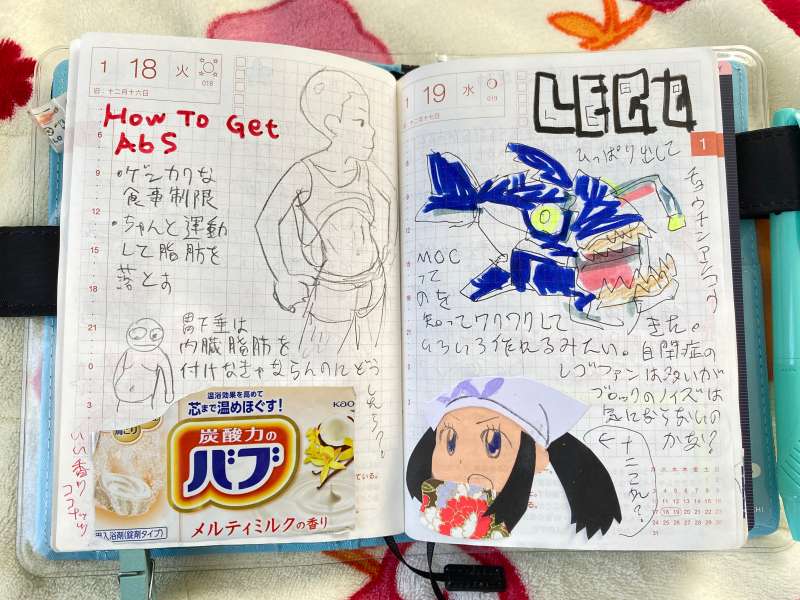 1 18 火
018
旧:十二月十六日
How To Get
AbS
・ゲンカクな
食事制限
・ちゃんと運動
して脂肪を
落とす
胃下垂は
内臓脂肪を
付けなきゃならんのにどう
しろと?
いい香り
ココナッツ
温浴効果を高めて
芯まで温めほぐす!
Kao
肩こり
炭酸力の
バブ
メルティミルクの香り
用入浴剤(錠剤タイプ)
1 19 水
019
旧:十二月十七日
1
LEGO
ひっぱり出して
チョウチンアンコウ
MOC
って
のを
知ってワクワクして
きた。
いろいろ作れるみたい。自閉症の
レゴファンは多いが
ブロックのノイズは
気にならないの
かな?